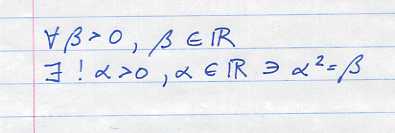 ∀ β > 0, β ∈ ℝ
∃! α > 0, α ∈ ℝ ∋ α² = β